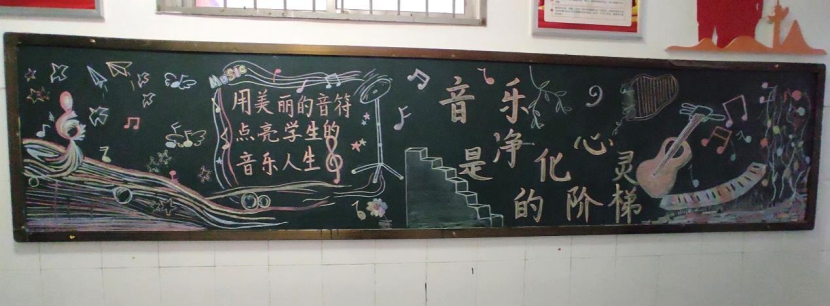 Music
用美丽的音符
点亮学生的
音乐人生
音乐
是净化心灵
的阶梯